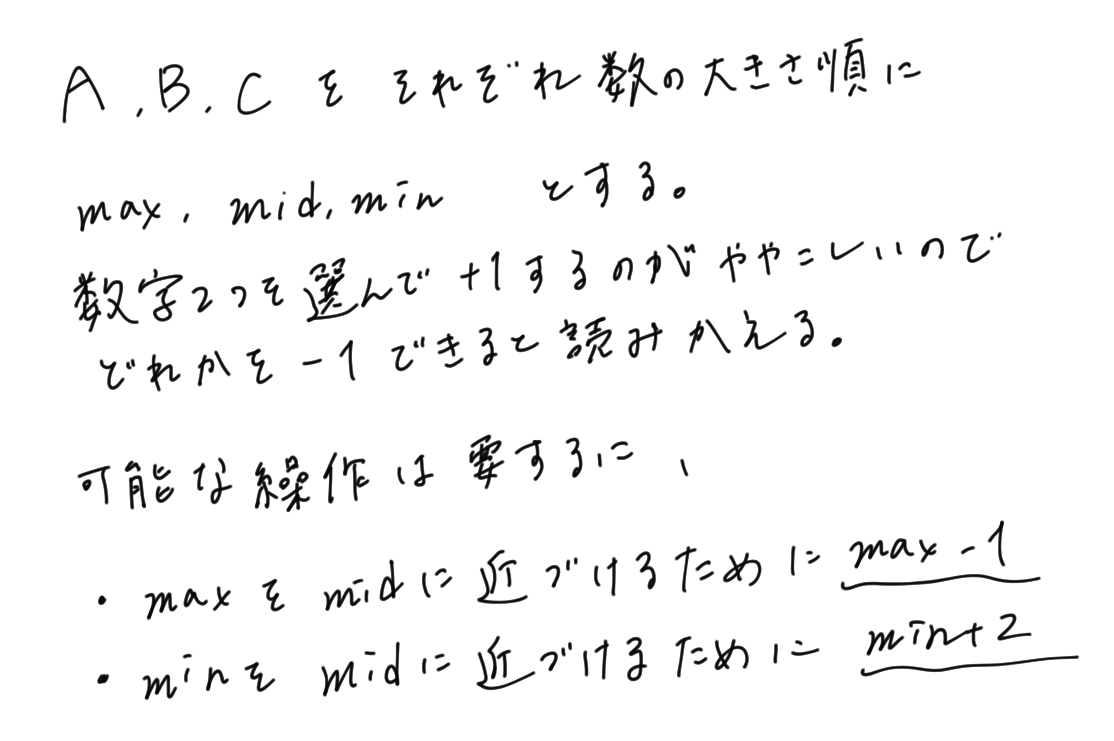 A, B, C を それぞれ 数の大きさ順に
max, mid, min とする。
数字2つを選んで+1するのがややこしいので
どれかを-1できると読みかえる。
可能な操作は要するに、
・maxをmidに近づけるためにmax-1
・minをmidに近づけるためにmin+2